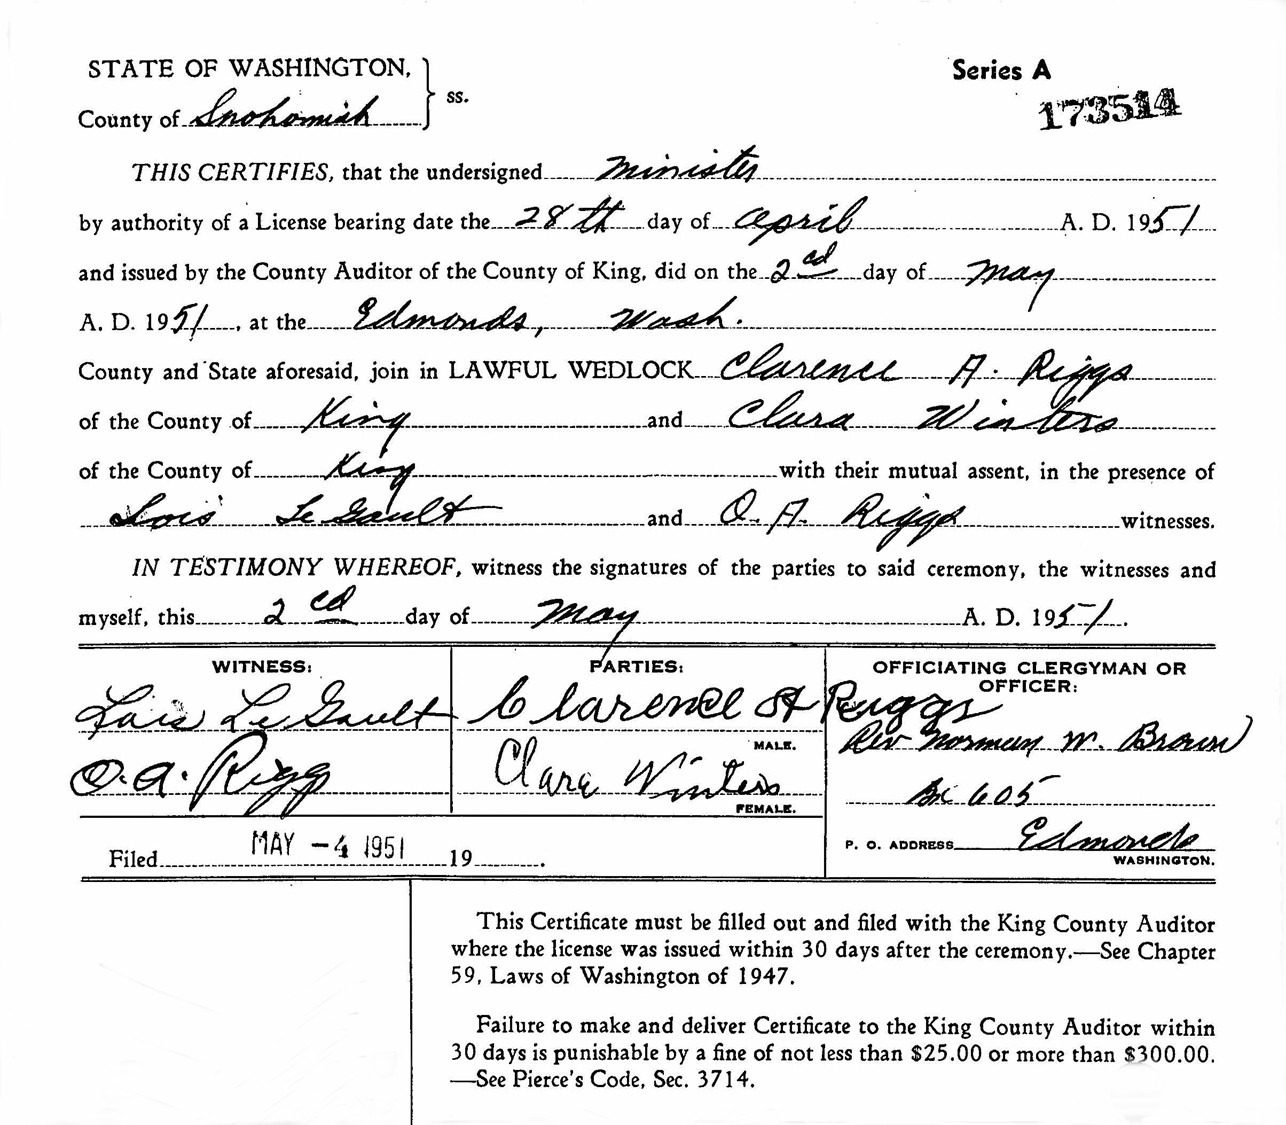 STATE OF WASHINGTON, } ss.
Series A
County of Snohomish
173514
THIS CERTIFIES, that the undersigned Minister
by authority of a License bearing date the 28th day of April A. D. 1951
and issued by the County Auditor of the County of King, did on the 2cd day of May
A. D. 1951, at the Edmonds, Wash.
County and State aforesaid, join in LAWFUL WEDLOCK Clarence A. Riggs
of the County of King and Clara Winters
of the County of King with their mutual assent, in the presence of
Lois Le Gault and O. A. Riggs witnesses.
IN TESTIMONY WHEREOF, witness the signatures of the parties to said ceremony, the witnesses and
myself, this 2cd day of May A. D. 1951.
WITNESS: PARTIES: OFFICIATING CLERGYMAN OR
OFFICER:
Lois Le Gault Clarence A Riggs
Rev Norman W. Brown
MALE.
O. A. Rigg Clara Winters
FEMALE.
Bx 605
P. O. ADDRESS Edmonds
WASHINGTON.
Filed MAY -4 1951 19 .
This Certificate must be filled out and filed with the King County Auditor
where the license was issued within 30 days after the ceremony.—See Chapter
59, Laws of Washington of 1947.
Failure to make and deliver Certificate to the King County Auditor within
30 days is punishable by a fine of not less than $25.00 or more than $300.00.
—See Pierce's Code, Sec. 3714.